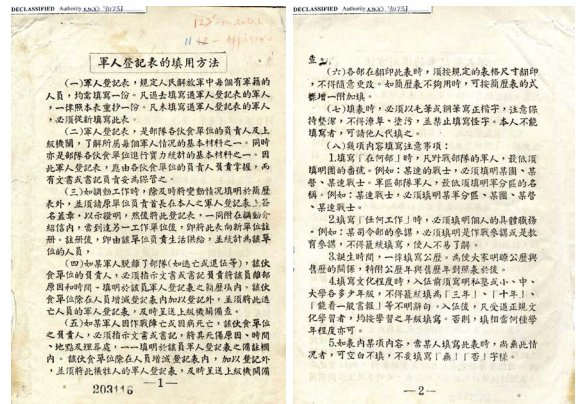 DECLASSIFIED Authority
軍人登記表的填用方法
（一）軍人登記表，規定人民解放軍中每個有軍籍的
人員，均需填寫一份。凡過去填寫過軍人登記表的軍人，
一律照本表重抄一份。凡未填寫過軍人登記表的軍人，
必須從新填寫此表。
（二）軍人登記表，是部隊各伙食單位的負責人及上
級機關，了解所屬每個軍人情況的基本材料之一。同時
亦是部隊各伙食單位進行實力統計的基本材料之一。因
此軍人登記表，應由各伙食單位的負責人員負責掌握，而
有文書或書記負責妥為保管之。
（三）如調動工作時，除及時將變動情況填明於簡歷
表外，並須請原單位負責首長在本人之軍人登記表上簽
名蓋章，以示證明，然後將此登記表，一同附在調動介
紹信內，當到達另一工作單位後，即將此表向新單位註
冊。註冊後，即由該單位負責生活供給，並統計為該單
位的人員，
（四）如某軍人脫離了部隊（如逃亡或退伍等），該伙
食單位的負責人，必須指示文書或書記負責將該員離部
原因和時間，填明於該員軍人登記表之簡歷項內。該伙食
單位除在人員增減登記表內加以登記外，並須將此逃
亡人員的軍人登記表，及時呈送上級機關備查。
（五）如某軍人因作戰陣亡或因病死亡，該伙食單位
之負責人，必須指示文書或書記，將其死傷原因、時間
、地點及埋葬處，一一填明於該員軍人登記表之備註欄
內。該伙食單位除在人員增減登記表內，加以登記外
，並須將此犧牲人的軍人登記表，及時呈送上級機關備
—1—
203116
DECLASSIFIED Authority
查。
（六）各部在翻印此表時，須按規定的表格尺寸翻印
，不得隨意更改。如簡歷表不夠用時，可按簡歷表的式
樣增一附加頁。
（七）填表時，必須以毛筆或鋼筆寫正楷字，注意保
持整潔，不得潦草、塗污，並禁止填寫怪字。本人不能
填寫者，可請他人代填之。
（八）幾項內容填寫注意事項：
1.填寫「在何部」時，凡野戰部隊的軍人，最低須
填明團的番號。例如：某連的戰士，必須填明某團、某
營、某連戰士。軍區部隊軍人，最低須填明軍分區的名
稱。例如：某連戰士，必須填明某軍分區、某團、某營
、某連戰士。
2.填寫「任何工作」時，必須填明個人的具體職務
。例如：某司令部的參謀，必須填明是作戰參謀或是教
育參謀，不得籠統填寫，使人不易了解。
3.誕生時間，一律填寫公歷。為使大家明瞭公歷與
舊歷的關係，特附公歷年與舊歷年對照表於後。
4.填寫文化程度時，入伍前須寫明私塾或小、中、
大學各多少年級，不得籠統填為「三年」、「十年」、
「能看一般書報」等不明辭句。入伍後，凡受過正規文
化學習者，均按學習之年級填寫。否則，填相當何種學
年程度亦可。
5.如表內某項內容，當某人填寫此表時，尚無此情
況者，可空白不填，不要填寫「無」「否」字樣。
—2—